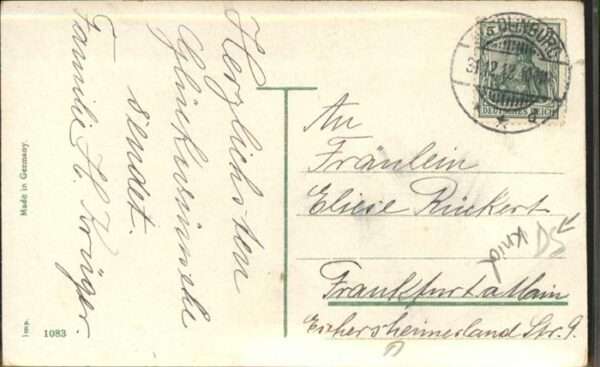 Herzlichsten
Glückwunsch
sendet.
Familie H. Krüger.
Made in Germany.
Imp. 1083
DEUTSCHES REICH
An
Fräulein
Eliese Rückert
Frankfurt a Main
Eschersheimerland Str. 9.